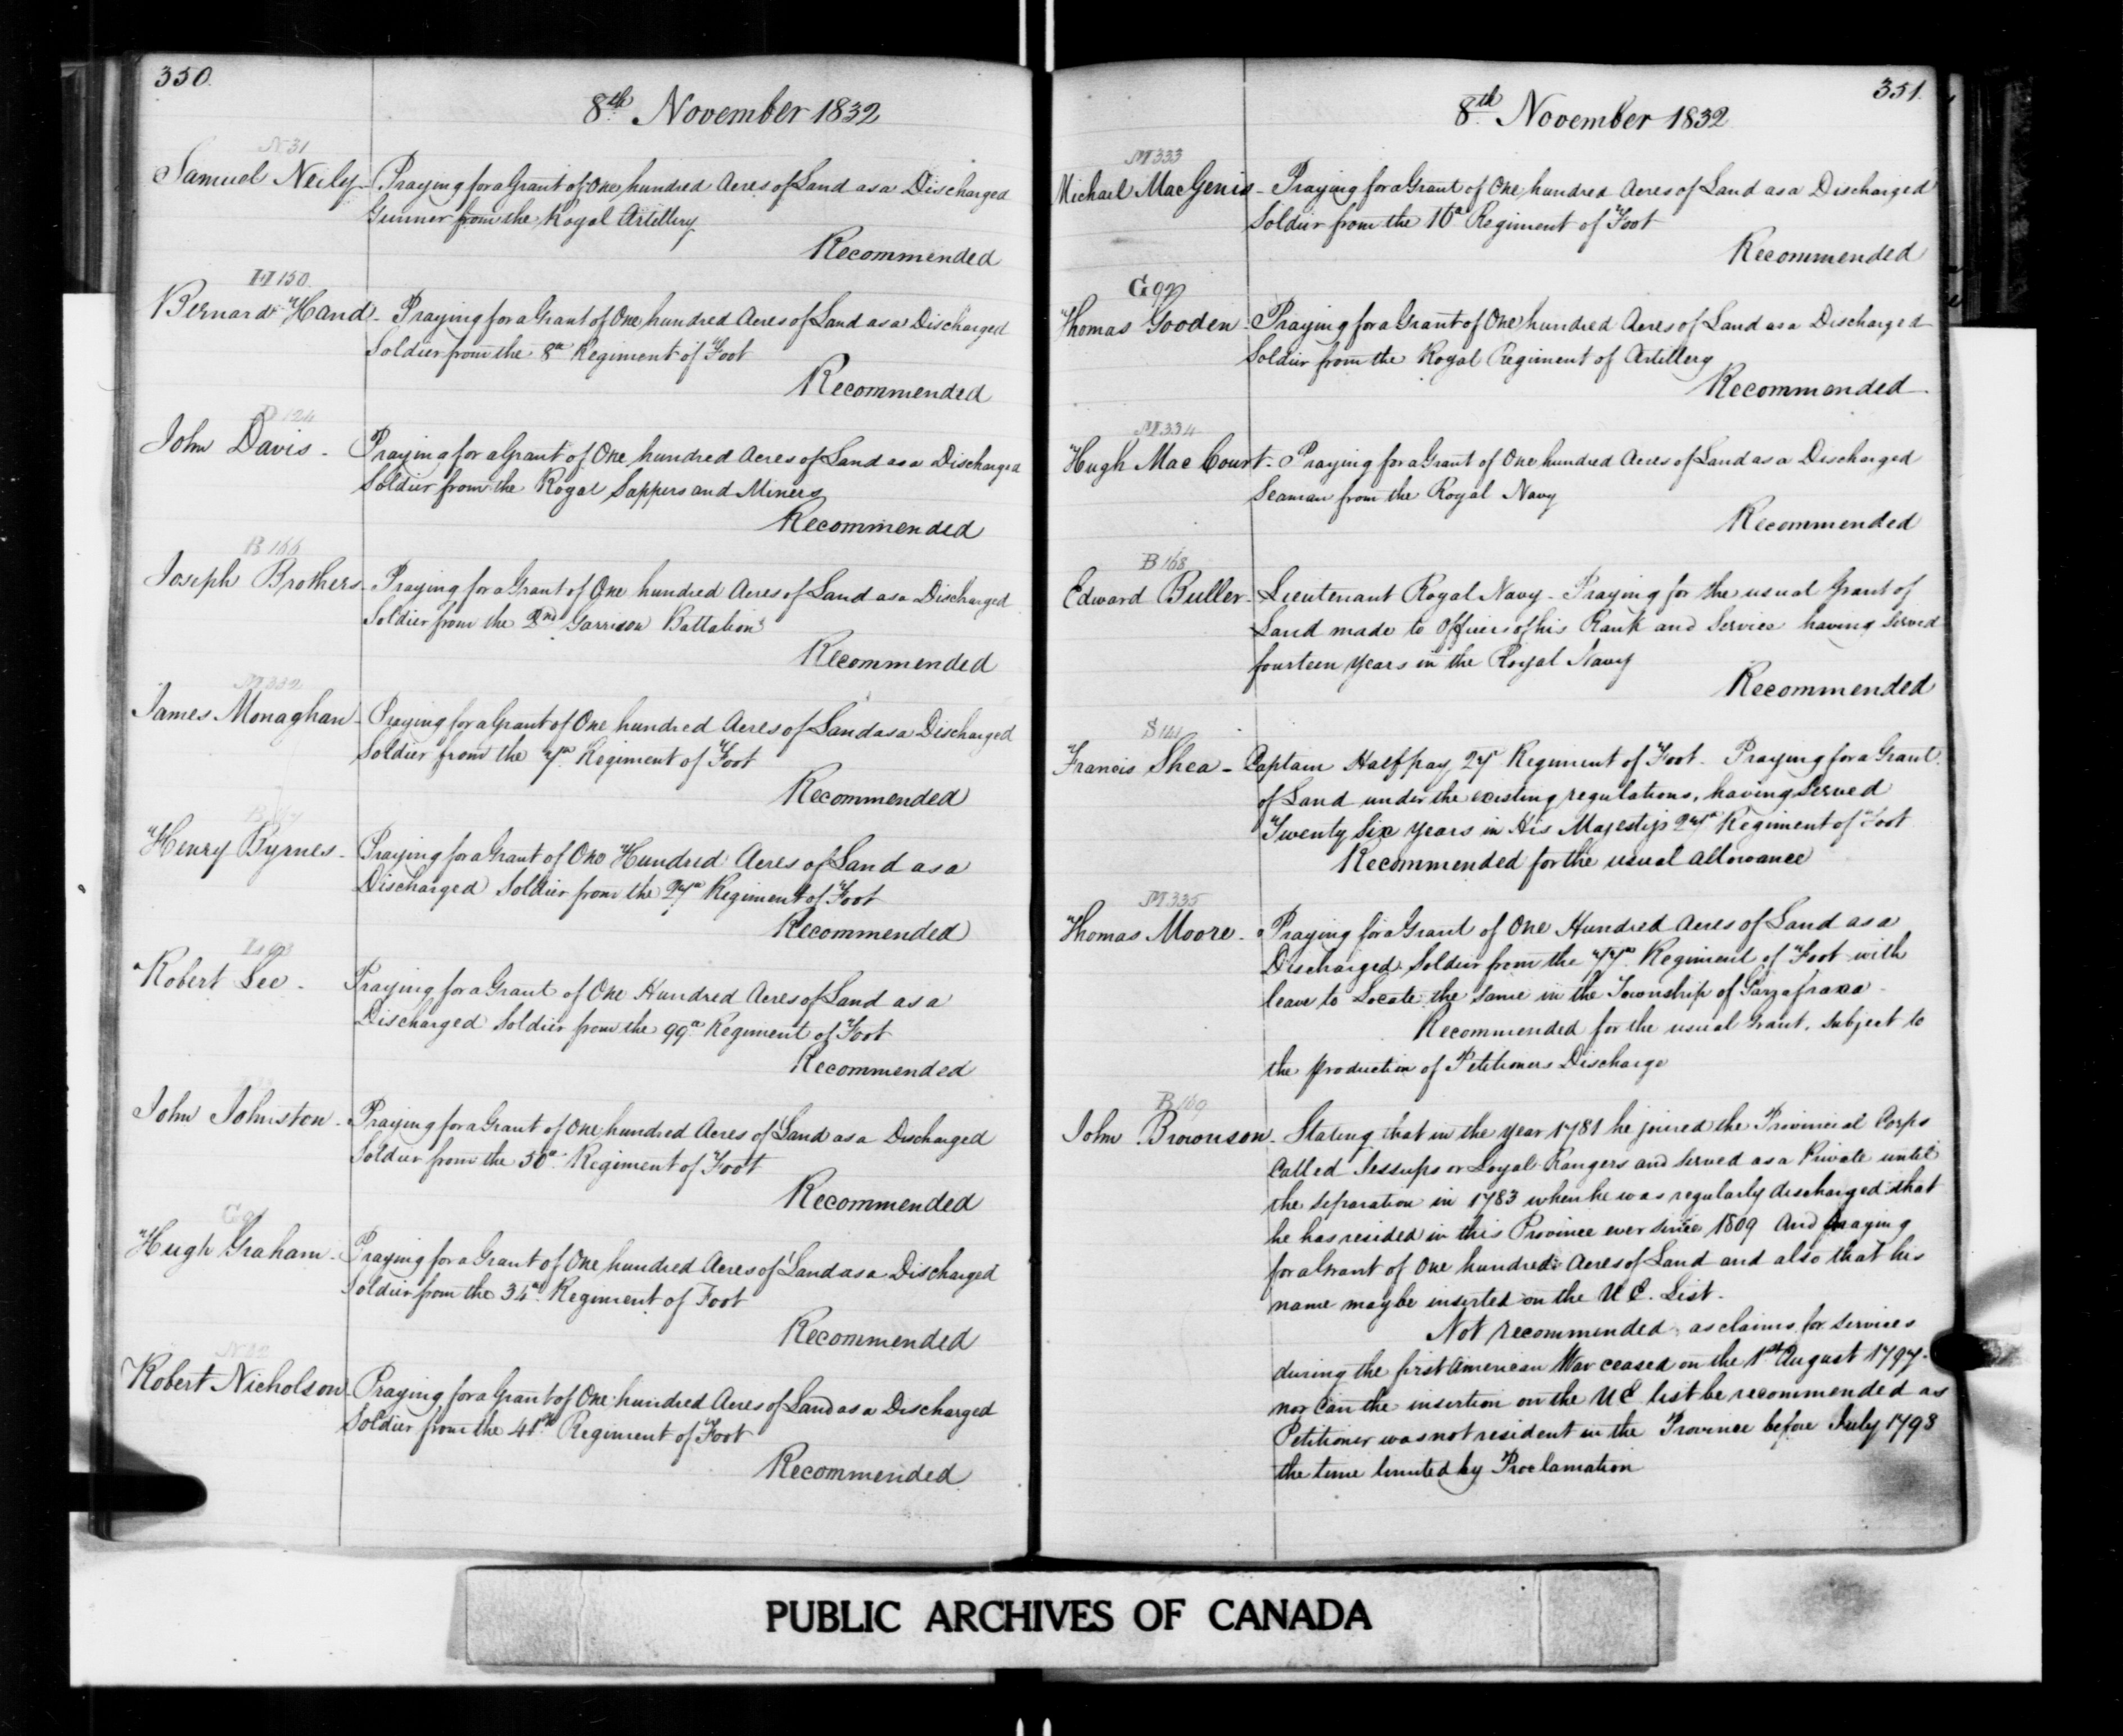 350.
8th November 1832
N 31
Samuel Neily - Praying for a Grant of One hundred Acres of Land as a Discharged
Gunner from the Royal Artillery
Recommended
H 150.
Bernard Hand - Praying for a Grant of One hundred Acres of Land as a Discharged
Soldier from the 8th Regiment of Foot
Recommended
D 124
John Davis - Praying for a Grant of One hundred Acres of Land as a Discharged
Soldier from the Royal Sappers and Miners
Recommended
B 166
Joseph Brothers - Praying for a Grant of One hundred Acres of Land as a Discharged
Soldier from the 2nd Garrison Battalion
Recommended
M 332
James Monaghan - Praying for a Grant of One hundred Acres of Land as a Discharged
Soldier from the 7th Regiment of Foot
Recommended
Henry Byrnes - Praying for a Grant of One Hundred Acres of Land as a
Discharged Soldier from the 27th Regiment of Foot
Recommended
Robert Lee - Praying for a Grant of One Hundred Acres of Land as a
Discharged Soldier from the 99th Regiment of Foot
Recommended
John Johnston - Praying for a Grant of One hundred Acres of Land as a Discharged
Soldier from the 50th Regiment of Foot
Recommended
G 91
Hugh Graham - Praying for a Grant of One hundred Acres of Land as a Discharged
Soldier from the 34th Regiment of Foot
Recommended
N 32
Robert Nicholson - Praying for a Grant of One hundred Acres of Land as a Discharged
Soldier from the 41st Regiment of Foot
Recommended
351.
8th November 1832
M 333
Michael MacGenis - Praying for a Grant of One hundred Acres of Land as a Discharged
Soldier from the 16th Regiment of Foot
Recommended
G 92
Thomas Gooden - Praying for a Grant of One hundred Acres of Land as a Discharged
Soldier from the Royal Regiment of Artillery
Recommended
M 334
Hugh Mac Court - Praying for a Grant of One hundred Acres of Land as a Discharged
Seaman from the Royal Navy
Recommended
B 168
Edward Buller - Lieutenant Royal Navy - Praying for the usual Grant of
Land made to Officers of his Rank and Service having Served
fourteen Years in the Royal Navy
Recommended
S 141
Francis Shea - Captain Half pay 27 Regiment of Foot. Praying for a Grant
of Land under the existing regulations, having Served
Twenty Six Years in His Majestys 27th Regiment of Foot
Recommended for the usual allowance
M 335
Thomas Moore - Praying for a Grant of One Hundred Acres of Land as a
Discharged Soldier from the 77th Regiment of Foot with
leave to Locate the same in the Township of Garrafraxa -
Recommended for the usual Grant, Subject to
the production of Petitioners Discharge
B 169
John Brownson - Stating that in the year 1781 he joined the Provincial Corps
Called Jessups or Loyal Rangers and Served as a Private until
the Separation in 1783 when he was regularly discharged that
he has resided in this Province ever since 1809 And praying
for a Grant of One hundred Acres of Land and also that his
name may be inserted on the U E. List.
Not recommended, as claims for Services
during the first American War ceased on the 1st August 1797.
nor can the insertion on the U E list be recommended as
Petitioner was not resident in the Province before July 1798
the time limited by Proclamation
PUBLIC ARCHIVES OF CANADA